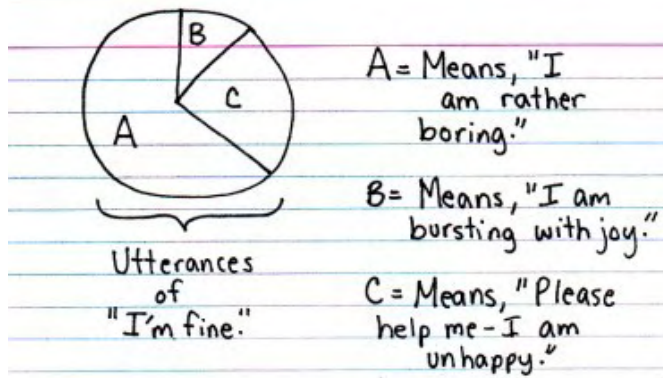 A
B
C
Utterances
of
"I'm fine."
A = Means, "I
am rather
boring."
B = Means, "I am
bursting with joy."
C = Means, "Please
help me - I am
unhappy."